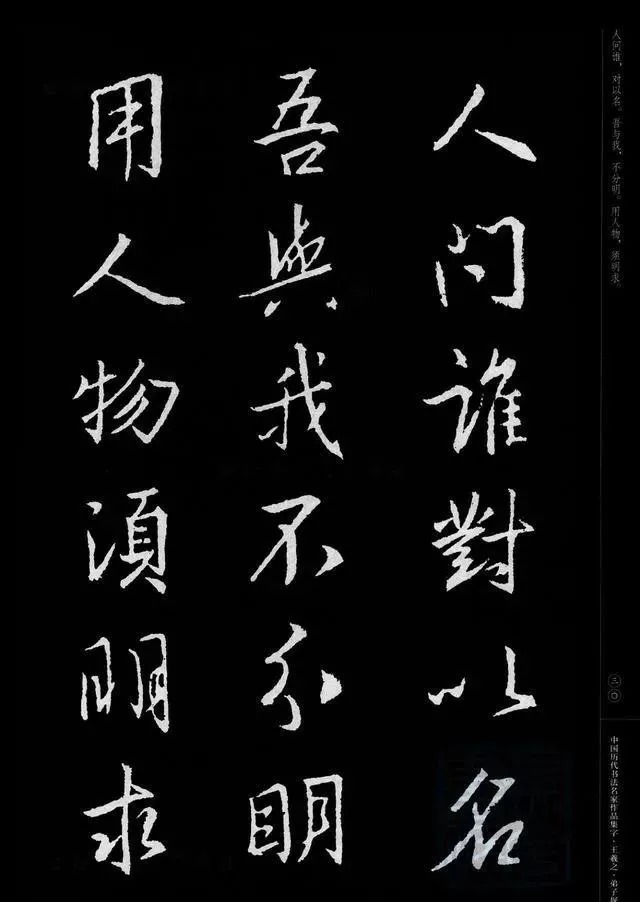 人问谁，对以名。吾与我，不分明。用人物，须明求。
三〇
中国历代书法名家作品集字·王羲之·弟子规
人問誰對以名
吾與我不分明
用人物須明求